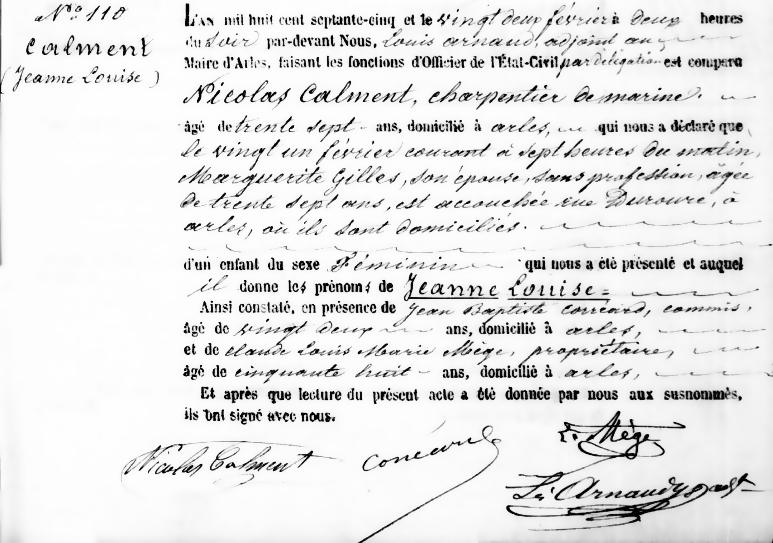 N.º 110
Calment
(Jeanne Louise)
L'AN mil huit cent septante-cinq et le vingt deux février à deux heures
du soir par-devant Nous, Louis arnaud, adjoint au
Maire d'Arles, faisant les fonctions d'Officier de l'État-Civil par délégation est comparu
Nicolas Calment, charpentier de marine.
âgé de trente sept ans, domicilié à arles, qui nous a déclaré que
le vingt un février courant à sept heures du matin,
Marguerite Gilles, son épouse, sans profession, âgée
de trente sept ans, est accouchée rue Duroure, à
arles, où ils sont domiciliés.
d'un enfant du sexe Féminin qui nous a été présenté et auquel
il donne les prénoms de Jeanne Louise=
Ainsi constaté, en présence de Jean Baptiste corréard, commis,
âgé de vingt deux ans, domicilié à arles,
et de claude Louis Marie Mège, propriétaire,
âgé de cinquante huit ans, domicilié à arles,
Et après que lecture du présent acte a été donnée par nous aux susnommés,
ils ont signé avec nous.
L. Mège
Nicolas Calment
Corréard
Ls Arnaud adjt